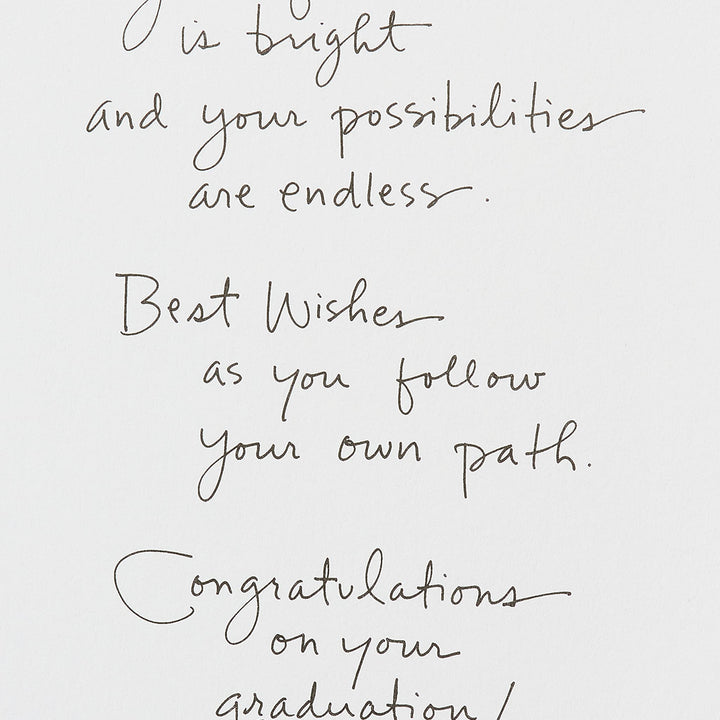 is bright
and your possibilities
are endless.
Best Wishes
as you follow
your own path.
Congratulations
on your
graduation!